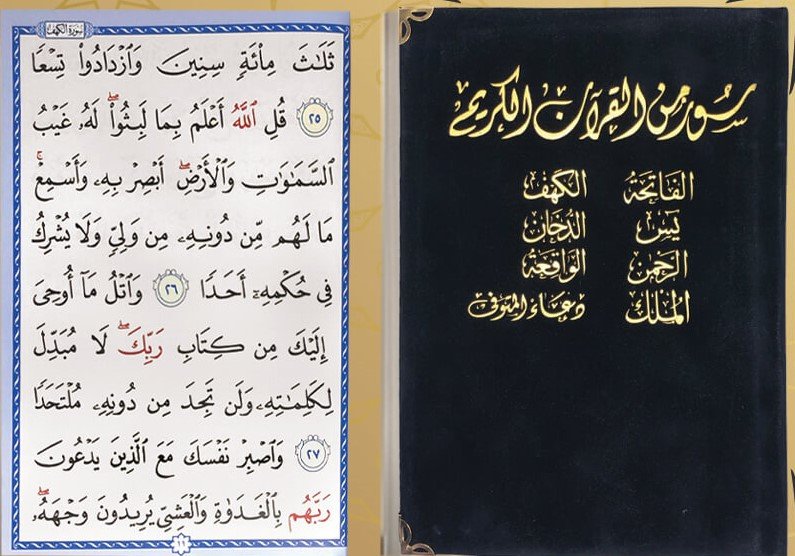 سورة الكهف
ثَلَٰثَ مِا۟ئَةٖ سِنِينَ وَٱزۡدَادُوا۟ تِسۡعٗا
٢٥ قُلِ ٱللَّهُ أَعۡلَمُ بِمَا لَبِثُوا۟ۖ لَهُۥ غَيۡبُ
ٱلسَّمَٰوَٰتِ وَٱلۡأَرۡضِۖ أَبۡصِرۡ بِهِۦ وَأَسۡمِعۡۚ
مَا لَهُم مِّن دُونِهِۦ مِن وَلِيّٖ وَلَا يُشۡرِكُ
فِي حُكۡمِهِۦٓ أَحَدٗا ٢٦ وَٱتۡلُ مَآ أُوحِيَ
إِلَيۡكَ مِن كِتَابِ رَبِّكَۖ لَا مُبَدِّلَ
لِكَلِمَٰتِهِۦ وَلَن تَجِدَ مِن دُونِهِۦ مُلۡتَحَدٗا
٢٧ وَٱصۡبِرۡ نَفۡسَكَ مَعَ ٱلَّذِينَ يَدۡعُونَ
رَبَّهُم بِٱلۡغَدَوٰةِ وَٱلۡعَشِيِّ يُرِيدُونَ وَجۡهَهُۥۖ
سور من القرآن الكريم
الفاتحة الكهف
يس الدخان
الرحمن الواقعة
الملك دعاء المتوفى